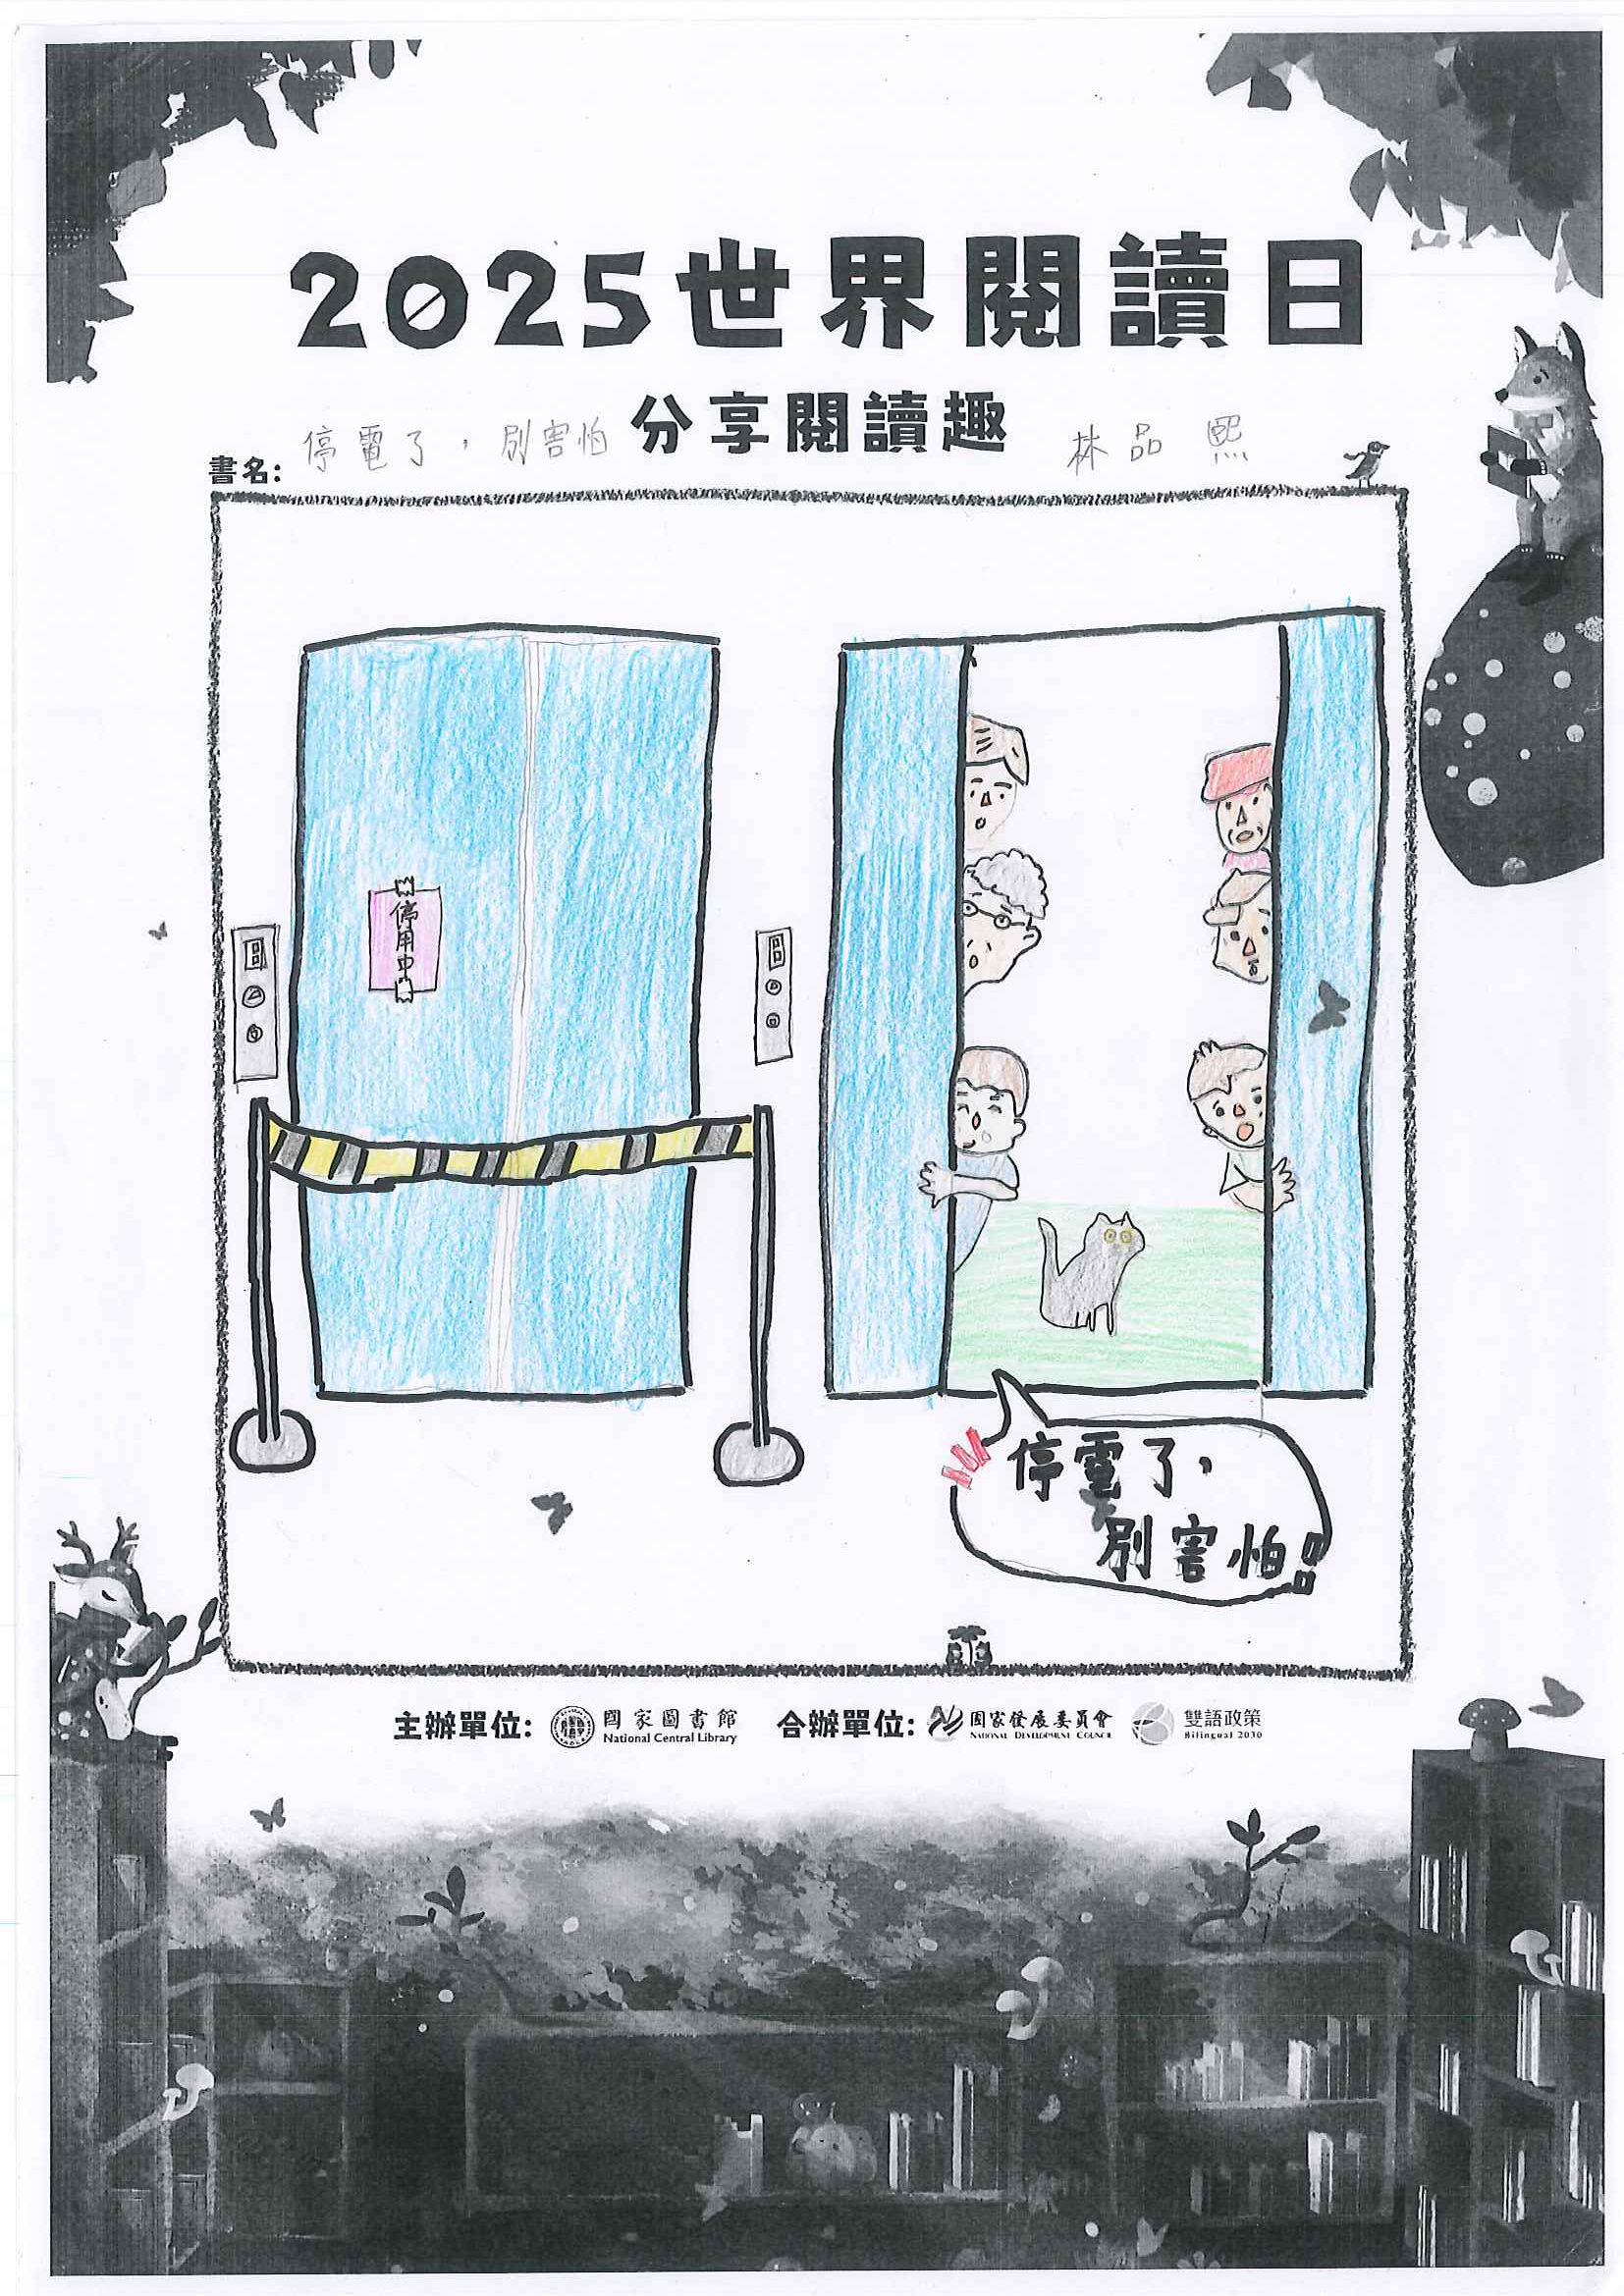 2025世界閱讀日
分享閱讀趣
書名: 停電了，別害怕
林品熙
停用中
停電了，
別害怕!!
主辦單位: 國家圖書館 National Central Library 合辦單位: 國家發展委員會 NATIONAL DEVELOPMENT COUNCIL 雙語政策 Bilingual 2030